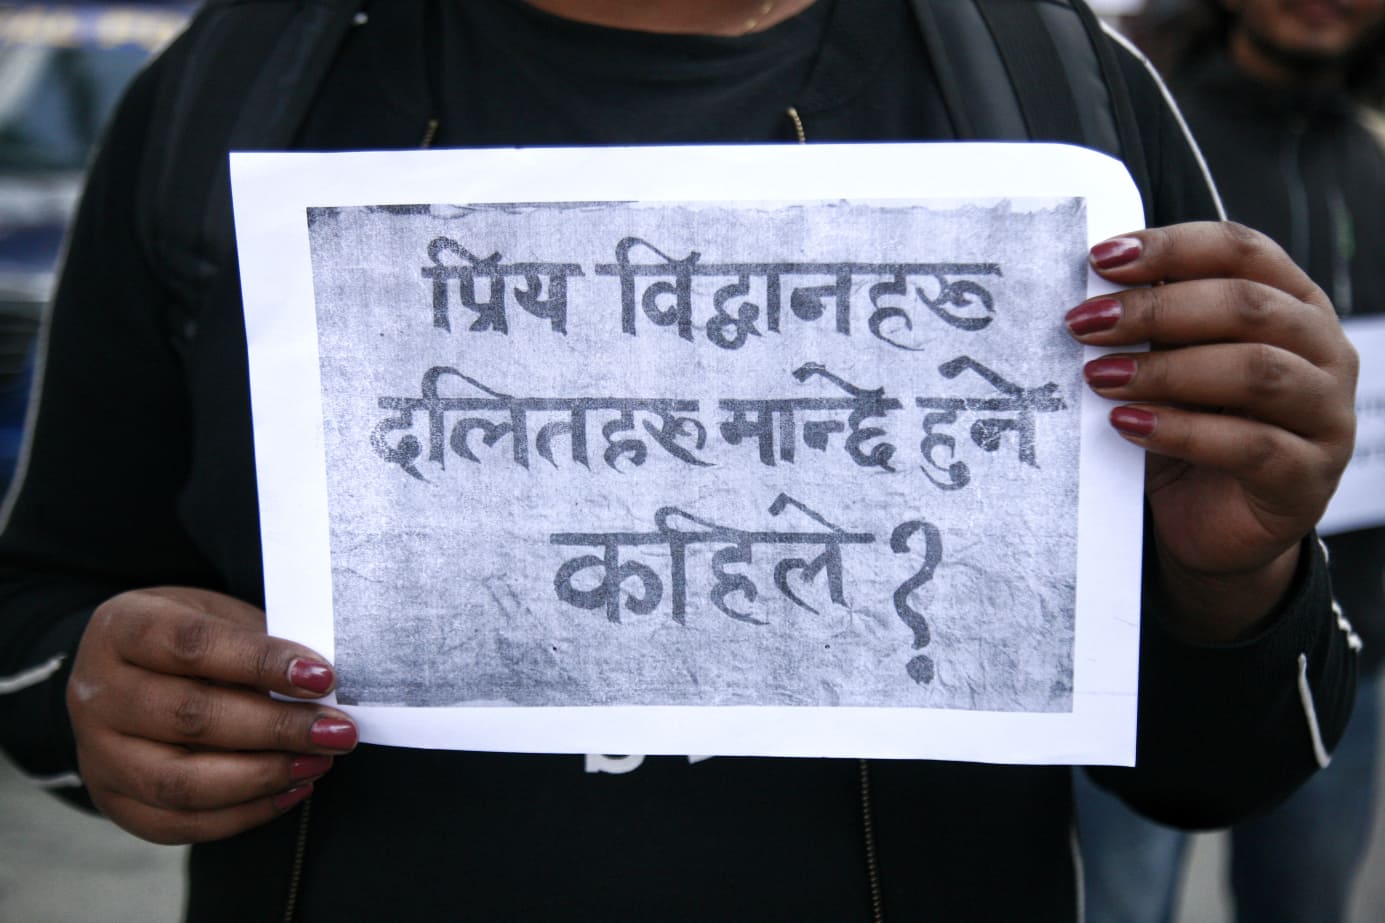 प्रिय विद्वानहरू
दलितहरू मान्छे हुने
कहिले?